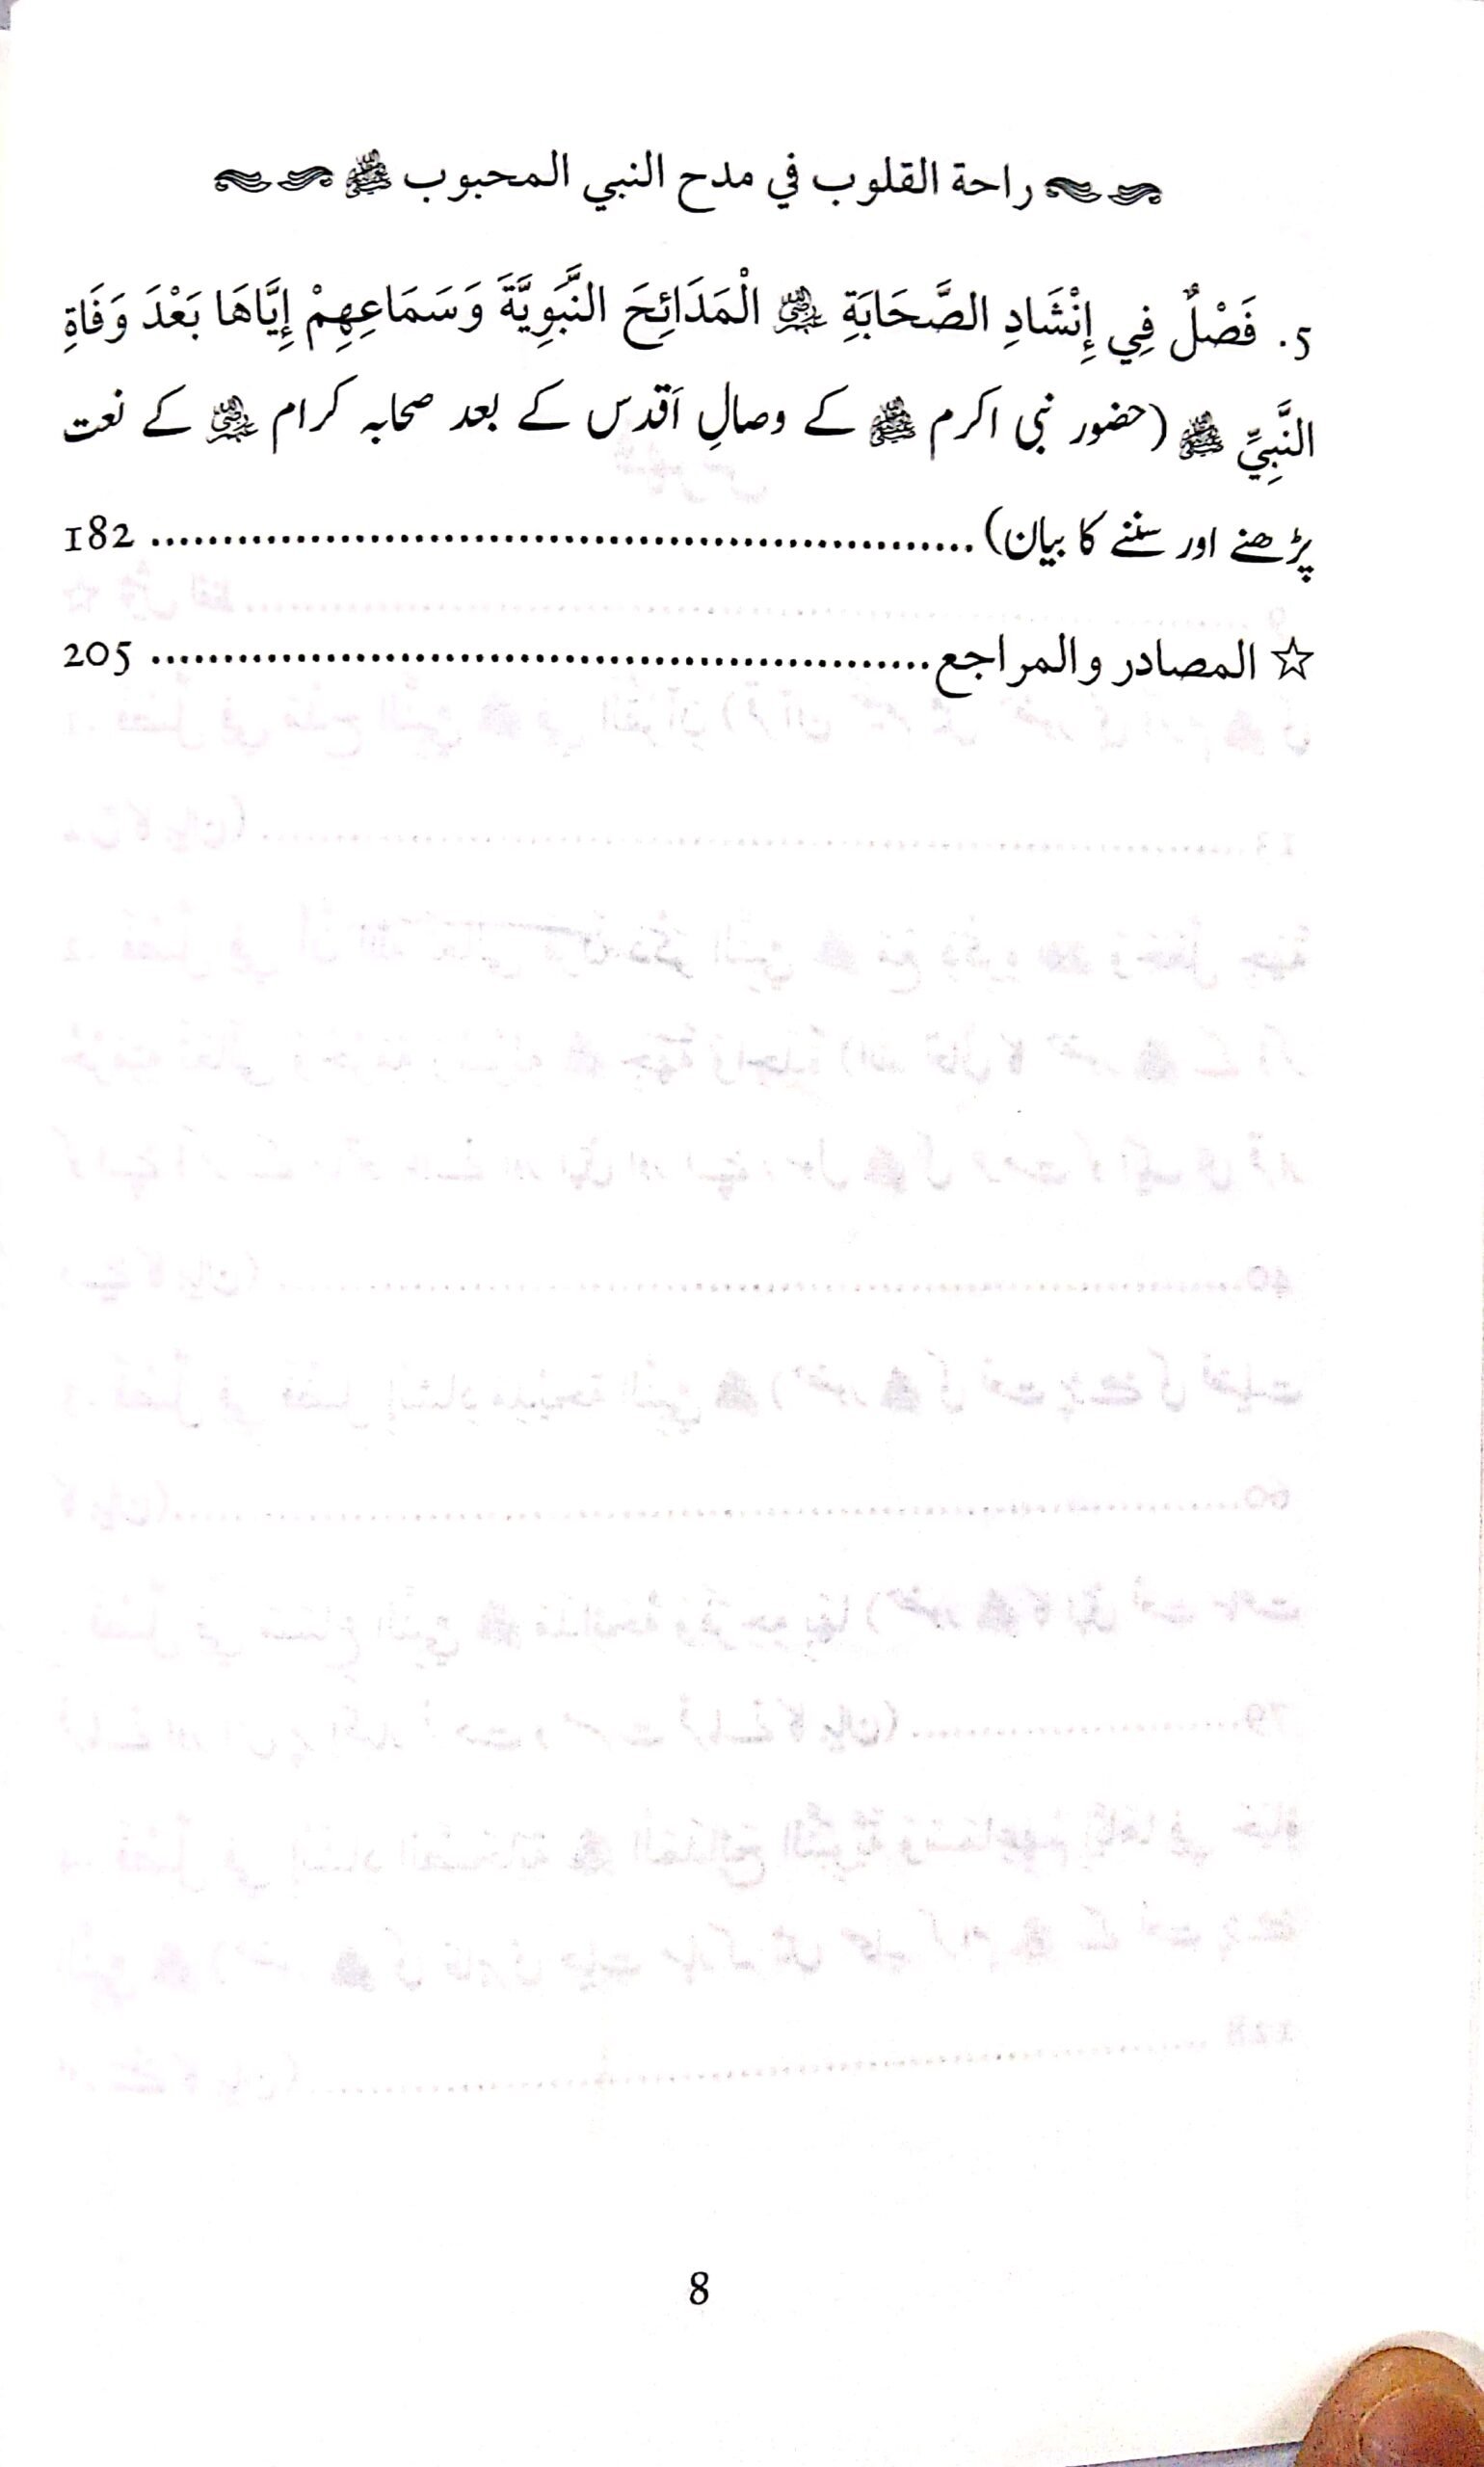 راحة القلوب في مدح النبي المحبوب ﷺ
5. فَصْلٌ فِي إِنْشَادِ الصَّحَابَةِ رضی اللہ عنہم الْمَدَائِحَ النَّبَوِيَّةَ وَسَمَاعِهِمْ إِيَّاهَا بَعْدَ وَفَاةِ
النَّبِيِّ ﷺ (حضور نبی اکرم ﷺ کے وصالِ اَقدس کے بعد صحابہ کرام رضی اللہ عنہم کے نعت
پڑھنے اور سننے کا بیان) ........................................................ 182
☆ المصادر والمراجع ........................................................ 205
8